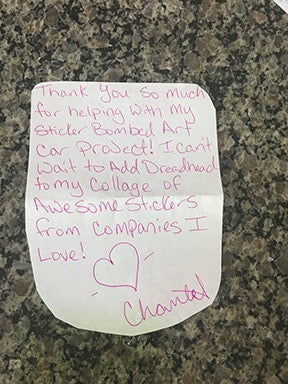 Thank You So much
for helping with my
Sticker Bombed Art
Car Project! I Can't
Wait to Add Dreadhead
to my Collage of
Awesome Stickers
From Companies I
Love!
Chantal